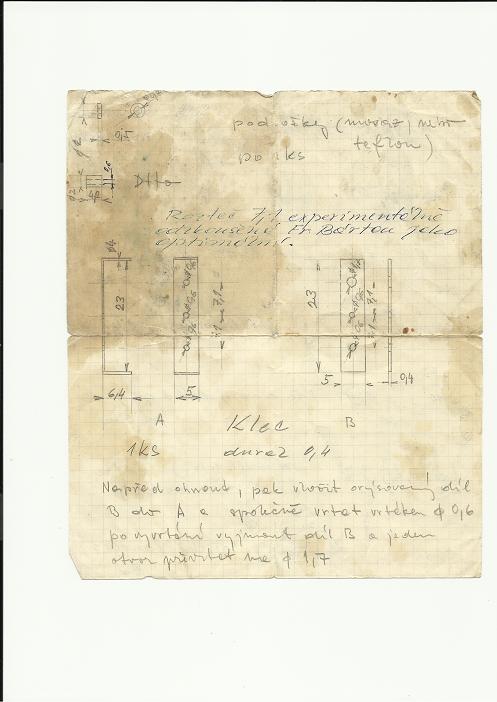 0,5
podložky (mosaz, nebo
teflon)
po 1ks
Rozteč 7,1 experimentálně
odzkoušená Fr. Bártou jako
optimální.
ø4
23
23
7,1
7,1
5
0,4
6,4
5
A
Klec
B
1ks
dural 0,4
Napřed ohnout, pak vložit orýsovaný díl
B do A a společně vrtat vrtákem ϕ 0,6
po vyvrtání vyjmout díl B a jeden
otvor převrtat na ϕ 1,7